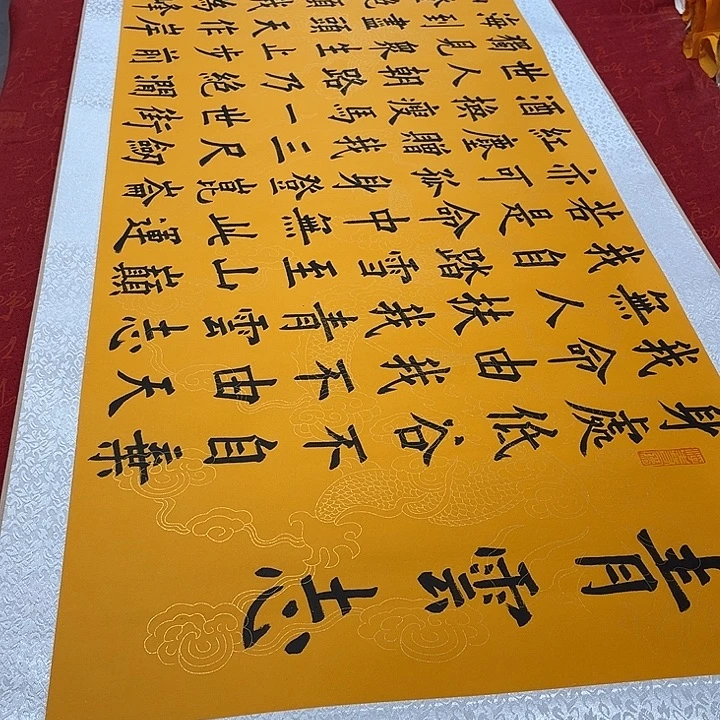 青雲志
身處低谷不自棄
我命由我不由天
無人扶我青雲志
我自踏雪至山巔
若是命中無此運
亦可孤身登崑崙
紅塵贈我三尺劍
酒換瘦馬一世街
世人朝路乃絕渭
獨見衆生止步前
海到盡頭天作岸